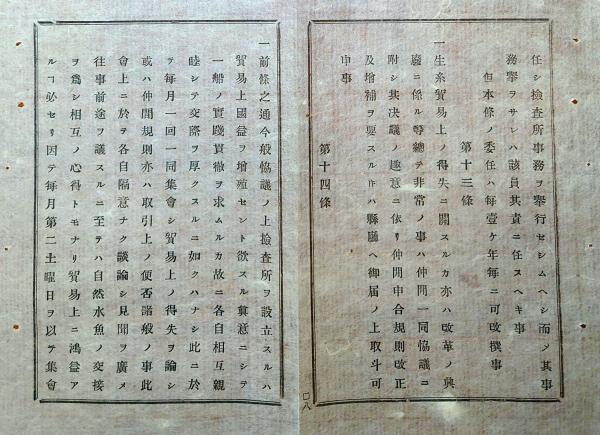 任シ撿查所事務ヲ擧行セシムヘシ而メ其事
務擧ヲサレハ該員其責ニ任スヘキ事
但本條ノ委任ハ每壹ケ年每ニ可改撰事
第十三條
一生糸貿易上ノ得失ニ關スルカ亦ハ改革ノ興
廢ニ係ル等總テ非常ノ事ハ仲間一同協議ニ
附シ其决議ノ趣意ニ依リ仲間申合規則改正
及增補ヲ要スル𪜈ハ縣廳ヘ御届ノ上取斗可
申事
第十四條
一前條之通今般協議ノ上撿査所ヲ設立スルハ
貿易上國益ヲ增殖セント欲スル眞意ニシテ
一船ノ實踐貫徹ヲ求ムルカ故ニ各自相互親
睦シテ交際ヲ厚クスルニ如クハナシ此ニ於
テ每月一回一同集會シ貿易上ノ得失ヲ論シ
或ハ仲間規則亦ハ取引上ノ便否諸般ノ事此
會上ニ於テ各自隔意ナク談論シ見聞ヲ廣メ
往事前途ヲ議スルニ至テハ自然水魚ノ交接
ヲ爲シ相互ノ心得トモナリ貿易上ニ鴻益ア
ルヿ必セリ因テ每月第二土曜日ヲ以テ集會
〇八